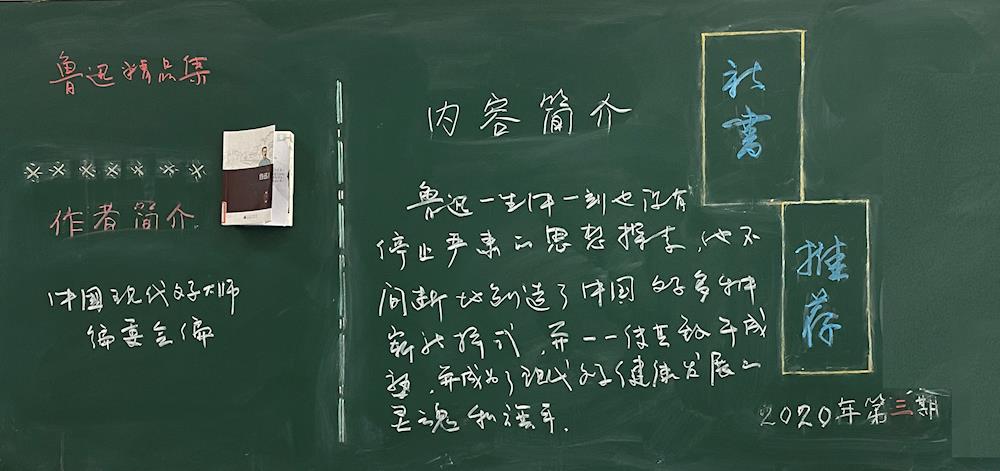 鲁迅精品集
作者简介
中國现代文学大师
编委会编
内容简介
鲁迅一生中一刻也没有
停止严肃的思想探索,他不
间断地创造了中国文学多种
崭新样式,并一一使其致于成
熟,并成为了现代文学健康发展的
灵魂和
新書
推荐
2020年第三期